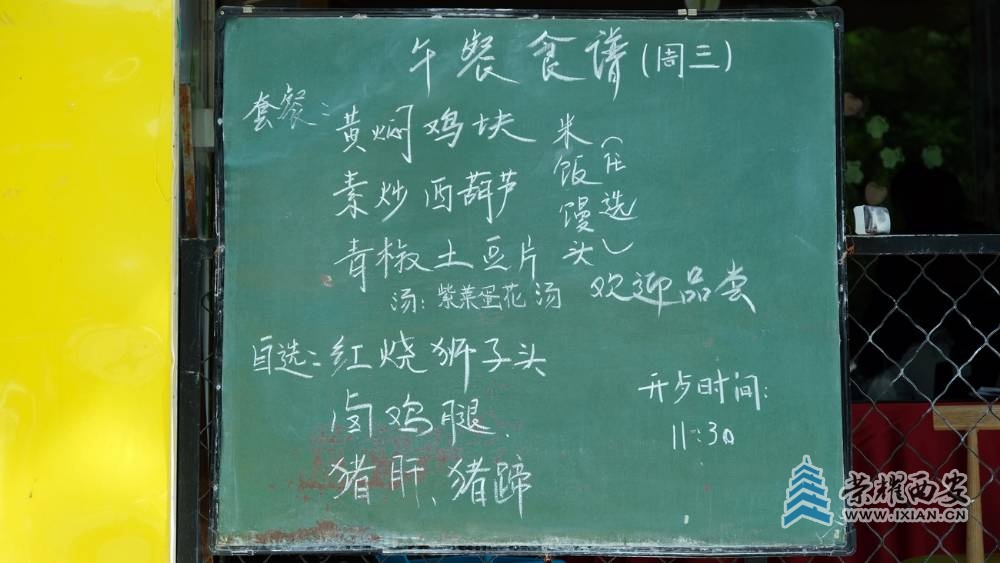 午餐食谱(周三)
套餐:黄焖鸡块
素炒西葫芦
青椒土豆片
米饭馒头
(任选)
汤:紫菜蛋花汤
欢迎品尝
自选:红烧狮子头
卤鸡腿、
猪肝、猪蹄
开歺时间:
11:30
荣耀西安
WWW.IXIAN.CN